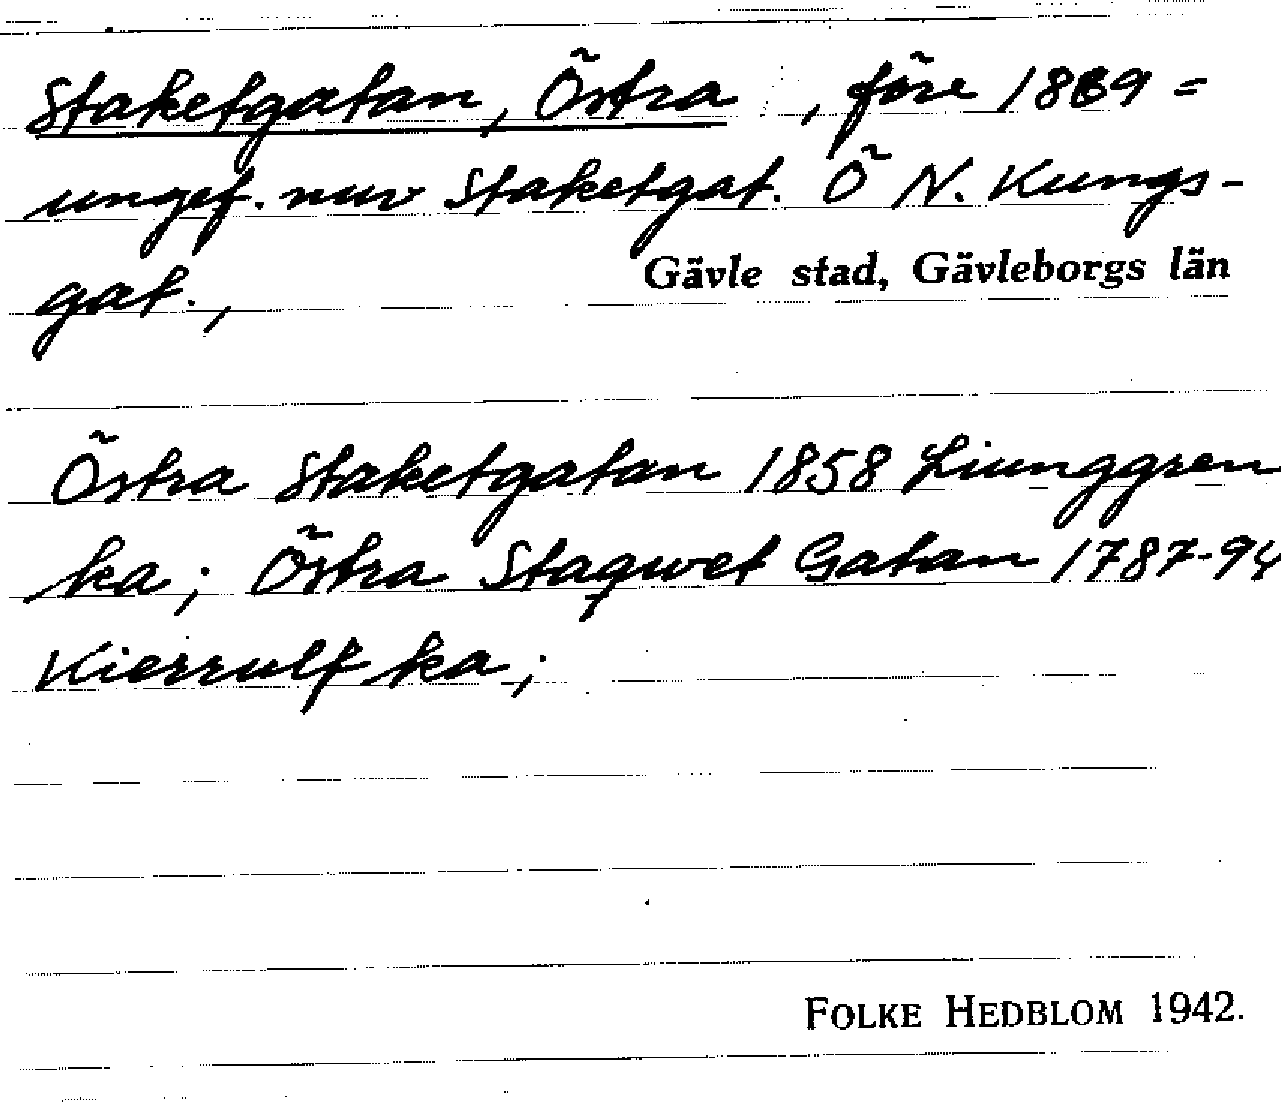 Staketgatan, Östra , före 1869 =
ungef. nuv Staketgat. Ö N. Kungs-
gat.,
Gävle stad, Gävleborgs län
Östra Staketgatan 1858 Liunggren
ka; Östra Staqwet Gatan 1787-94
Kierrulf ka;
FOLKE HEDBLOM 1942.